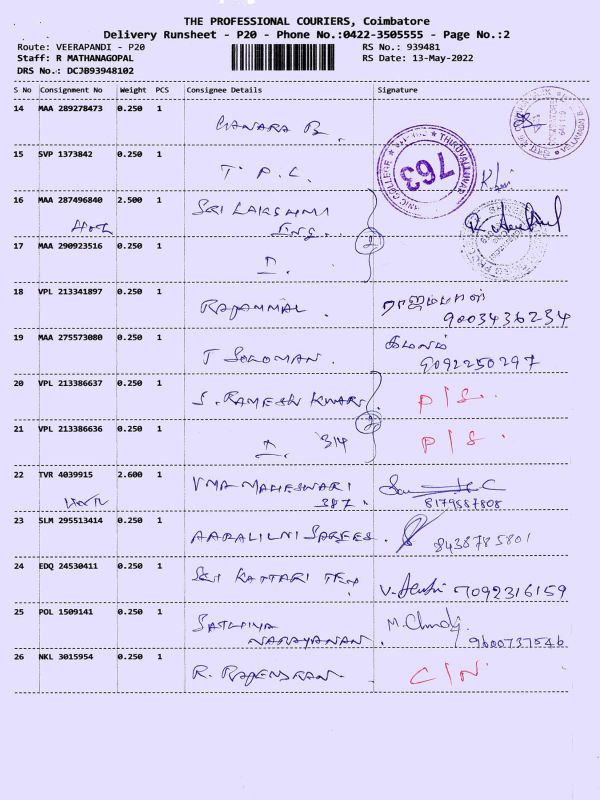 THE PROFESSIONAL COURIERS, Coimbatore
Delivery Runsheet - P20 - Phone No.:0422-3505555 - Page No.:2
Route: VEERAPANDI - P20 RS No.: 939481
Staff: R MATHANAGOPAL RS Date: 13-May-2022
DRS No.: DCJB93948102
S No Consignment No Weight PCS Consignee Details Signature
14 MAA 289278473 0.250 1
CANARA B
15 SVP 1373842 0.250 1
T P. L. 763
16 MAA 287496840 2.500 1 SRI LAKSHMI
17 MAA 290923516 0.250 1
2
18 VPL 213341897 0.250 1
RAJAMMAL. ராஜம்மாள்
9003436234
19 MAA 275573080 0.250 1
T SOLOMAN. 9092250297
20 VPL 213386637 0.250 1
S. RAMESH KUMAR P/S.
2
21 VPL 213386636 0.250 1 314 P/S.
22 TVR 4039915 2.600 1 UMA MAHESWARI
387. 8179587808
23 SLM 295513414 0.250 1
8438785801
24 EDQ 24530411 0.250 1 SRI KATTARI TEX
7092316159
25 POL 1509141 0.250 1 SATHIYA
NARAYANAN. 9600737546
26 NKL 3015954 0.250 1
R. RAJENDRAN C/N